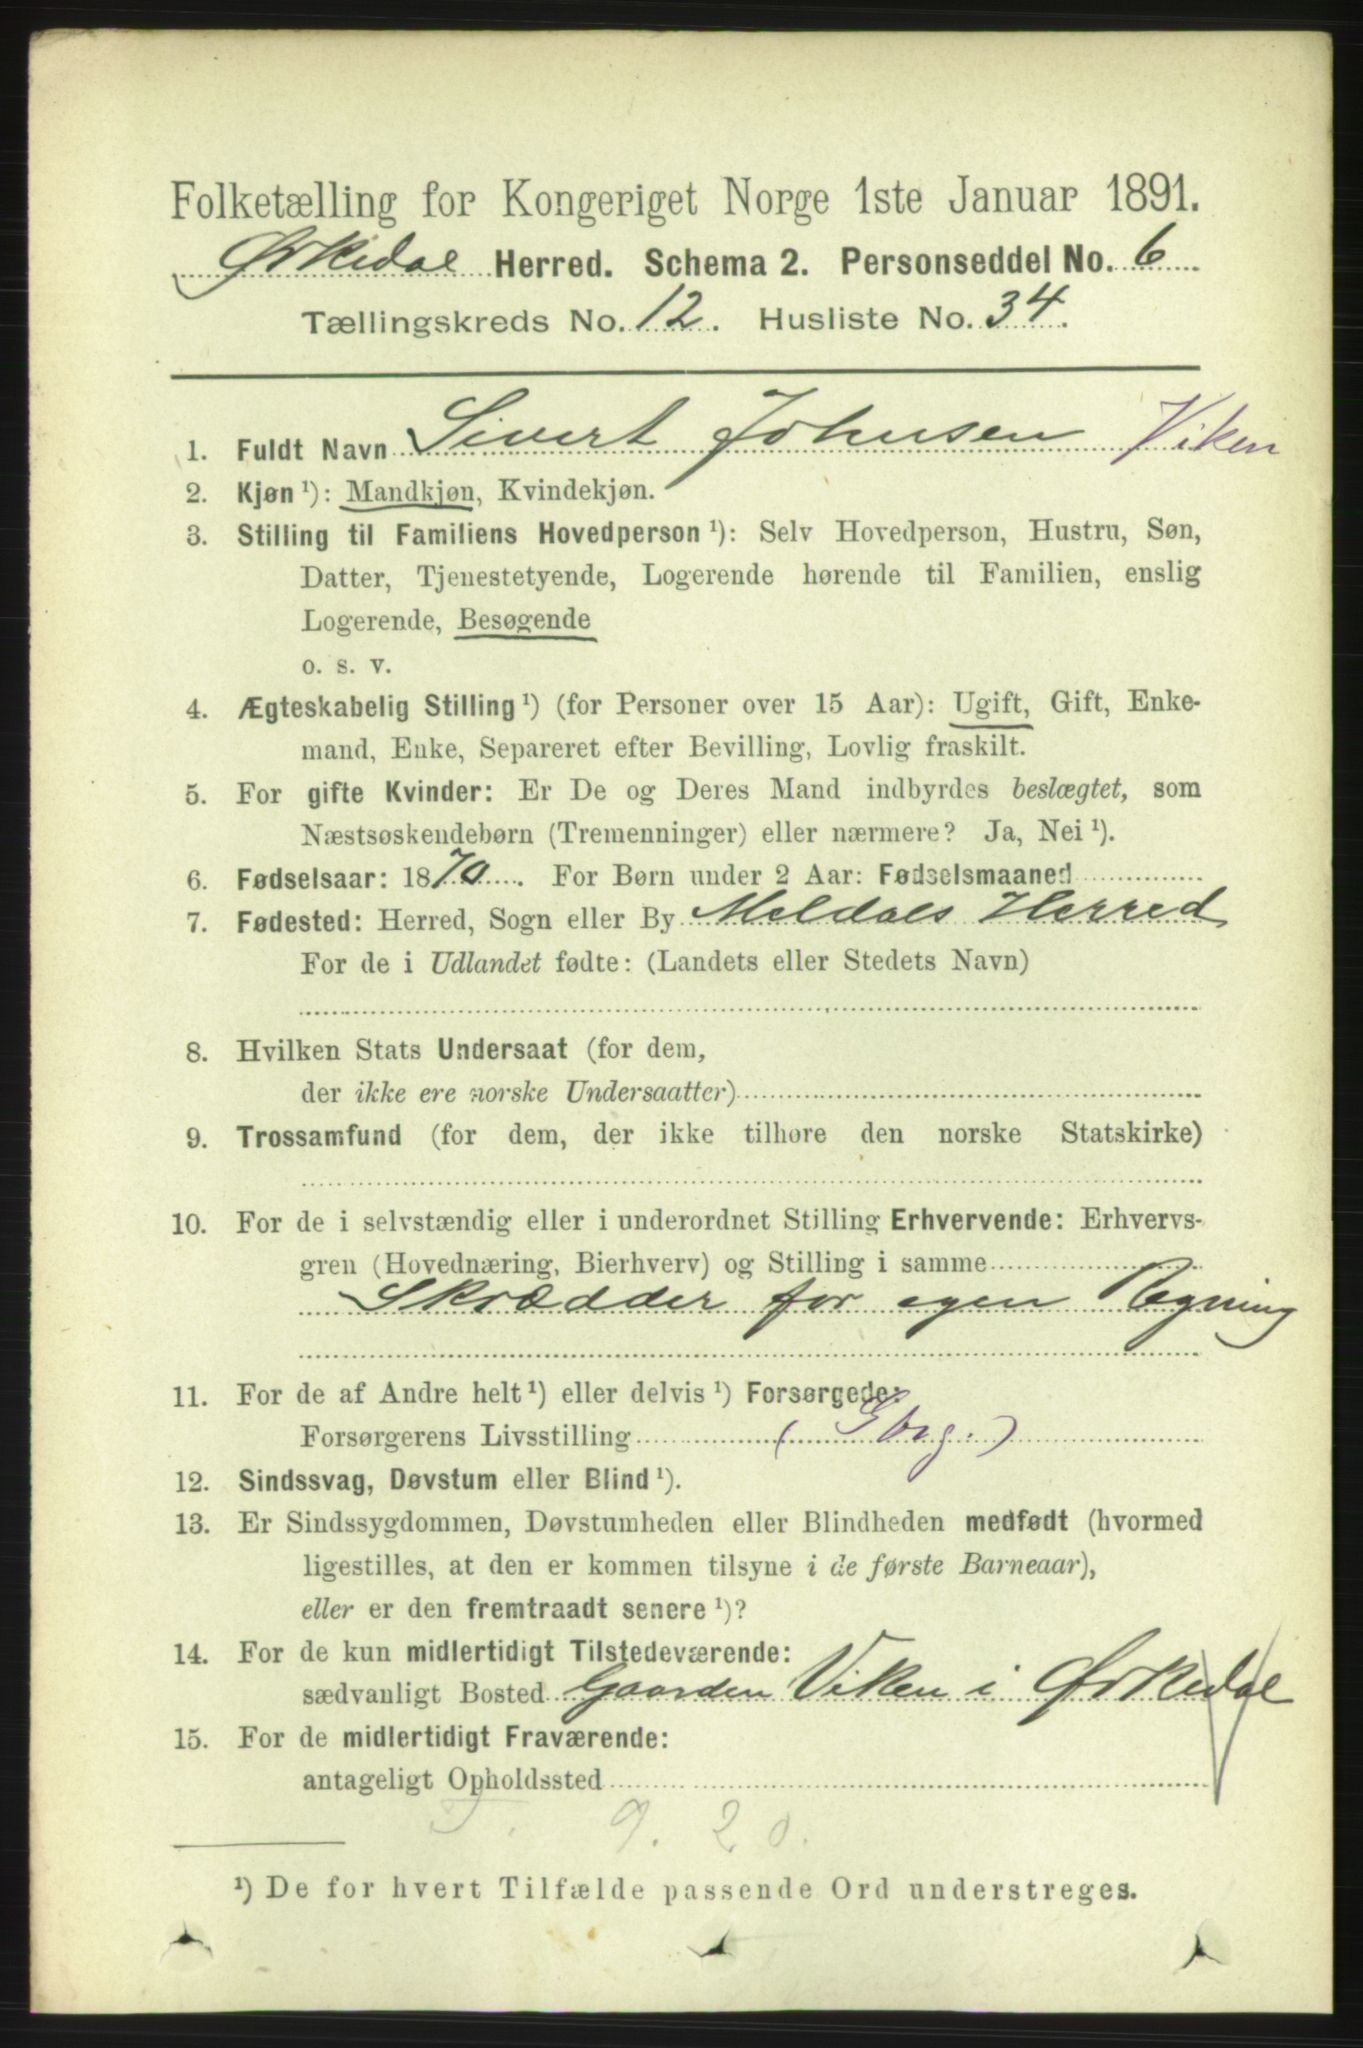 Folketælling for Kongeriget Norge 1ste Januar 1891.
Ørkedal Herred. Schema 2. Personseddel No. 6
Tællingskreds No. 12. Husliste No. 34.
1. Fuldt Navn Sivert Johnsen Viken
2. Kjøn ¹): Mandkjøn, Kvindekjøn.
3. Stilling til Familiens Hovedperson ¹): Selv Hovedperson, Hustru, Søn,
Datter, Tjenestetyende, Logerende hørende til Familien, enslig
Logerende, Besøgende
o. s. v.
4. Ægteskabelig Stilling ¹) (for Personer over 15 Aar): Ugift, Gift, Enke-
mand, Enke, Separeret efter Bevilling, Lovlig fraskilt.
5. For gifte Kvinder: Er De og Deres Mand indbyrdes beslægtet, som
Næstsøskendebørn (Tremenninger) eller nærmere? Ja, Nei ¹).
6. Fødselsaar: 1870. For Børn under 2 Aar: Fødselsmaaned
7. Fødested: Herred, Sogn eller By Meldals Herred
For de i Udlandet fødte: (Landets eller Stedets Navn)
8. Hvilken Stats Undersaat (for dem,
der ikke ere norske Undersaatter)
9. Trossamfund (for dem, der ikke tilhøre den norske Statskirke)
10. For de i selvstændig eller i underordnet Stilling Erhvervende: Erhvervs-
gren (Hovednæring, Bierhverv) og Stilling i samme
Skrædder for egen Regning
11. For de af Andre helt ¹) eller delvis ¹) Forsørgede:
Forsørgerens Livsstilling
12. Sindssvag, Døvstum eller Blind ¹).
13. Er Sindssygdommen, Døvstumheden eller Blindheden medfødt (hvormed
ligestilles, at den er kommen tilsyne i de første Barneaar),
eller er den fremtraadt senere ¹)?
14. For de kun midlertidigt Tilstedeværende:
sædvanligt Bosted Gaarden Viken i Ørkedal
15. For de midlertidigt Fraværende:
antageligt Opholdssted
9. 20.
¹) De for hvert Tilfælde passende Ord understreges.